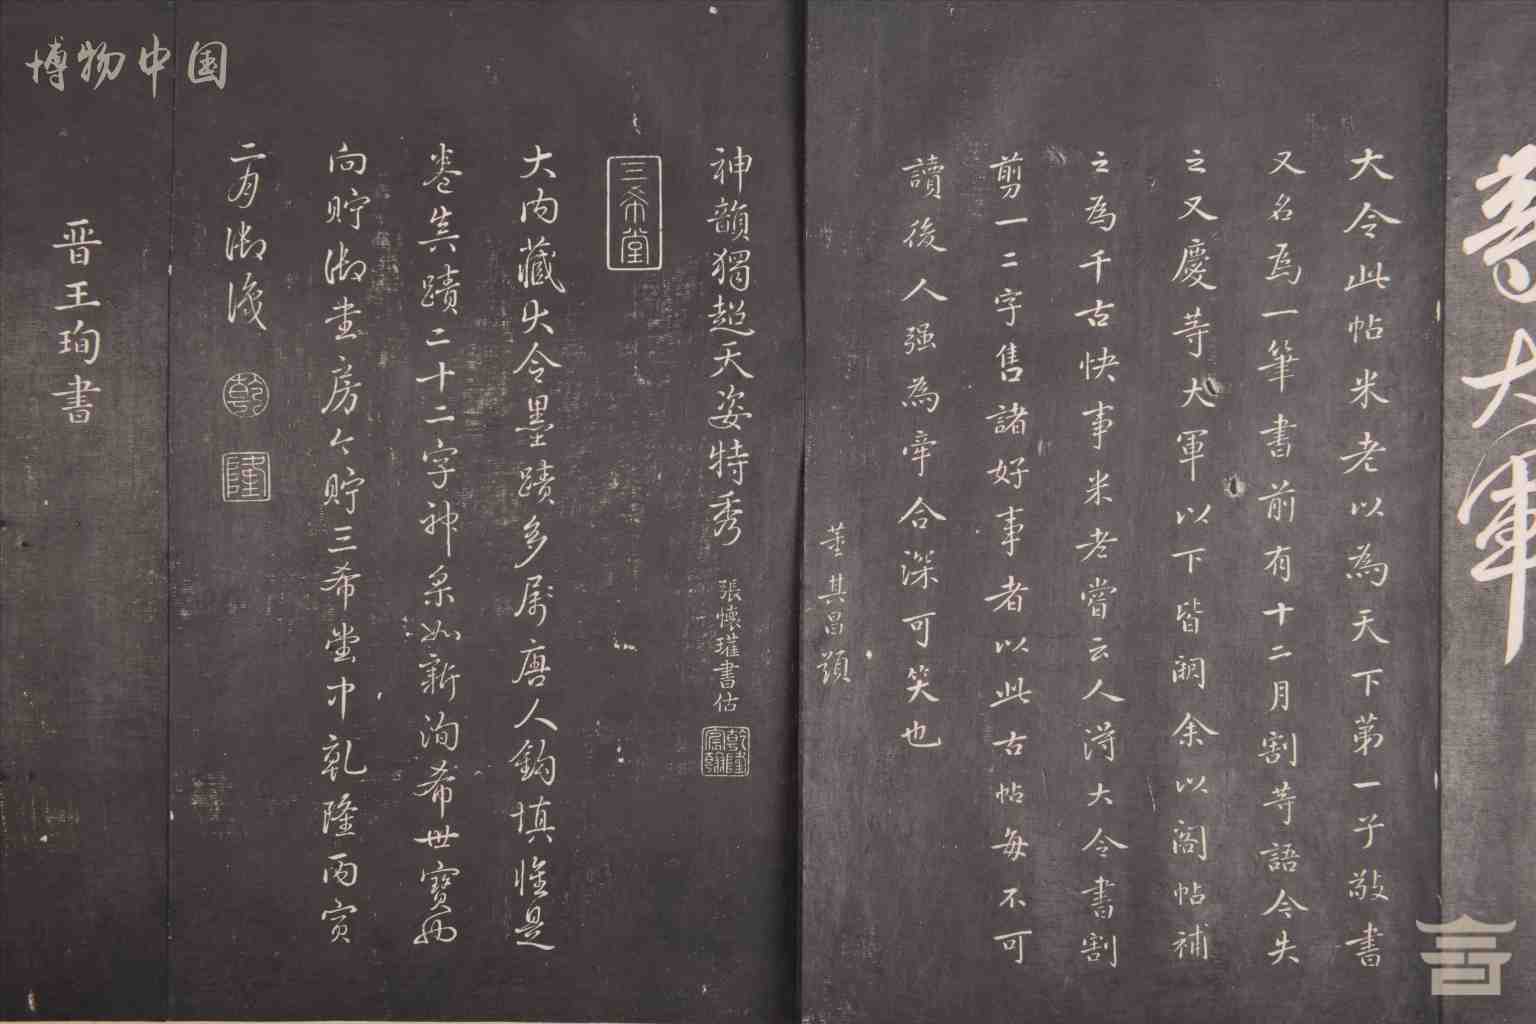 等大軍
大令此帖米老以為天下第一子敬書
又名為一筆書前有十二月割等語今失
之又慶等大軍以下皆闕余以閣帖補
之為千古快事米老嘗云人得大令書割
剪一二字售諸好事者以此古帖每不可
讀後人强為牽合深可笑也
董其昌題
神韻獨超天姿特秀
張懷瓘書估
乾隆宸翰
三希堂
大內藏大令墨蹟多屬唐人鉤填惟是
卷真蹟二十二字神采如新洵希世寶也
向貯御書房今貯三希堂中乾隆丙寅
二月御識
乾
隆
晋王珣書
博物中国